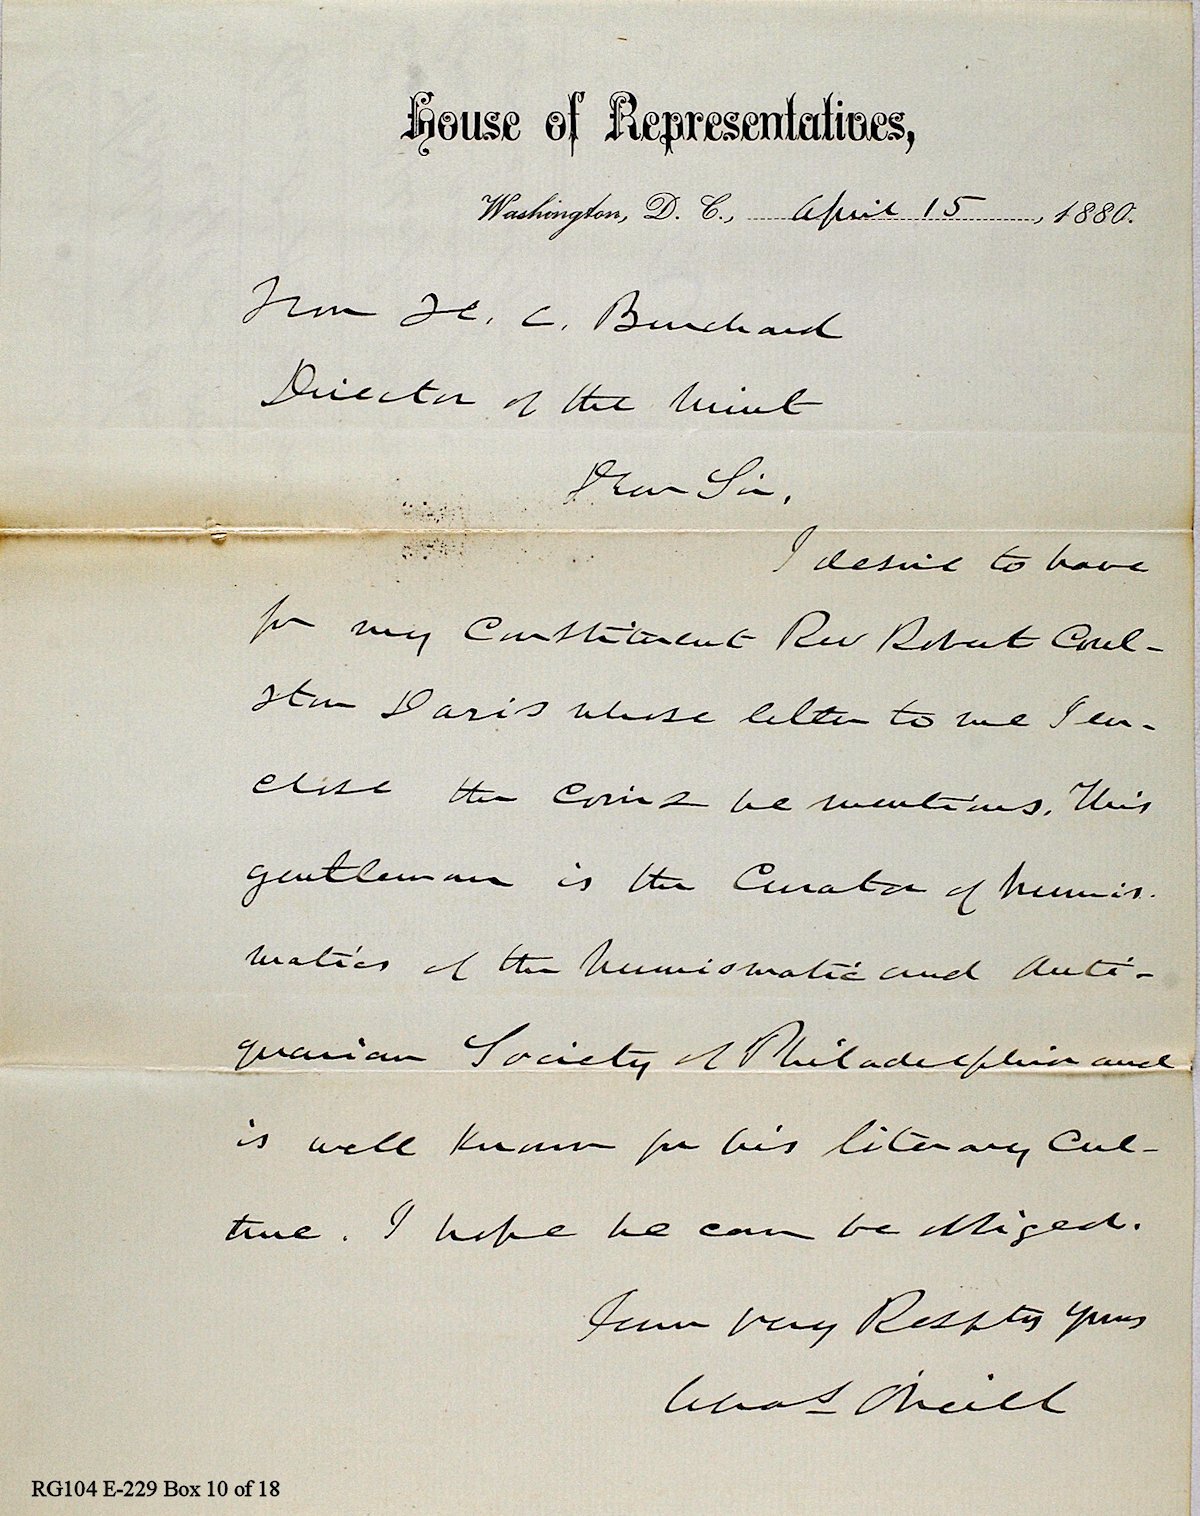 House of Representatives,
Washington, D. C., April 15, 1880.
Hon H. C. Burchard
Director of the Mint
Dear Sir,
I desire to have
for my Constituent Rev Robert Coul-
ston Davis whose letter to me I en-
close the coins he mentions. This
gentleman is the Curator of Numis-
matics of the Numismatic and Anti-
quarian Society of Philadelphia and
is well known for his literary cul-
ture. I hope he can be obliged.
I am very Respty yours
Chas O'Neill
RG104 E-229 Box 10 of 18